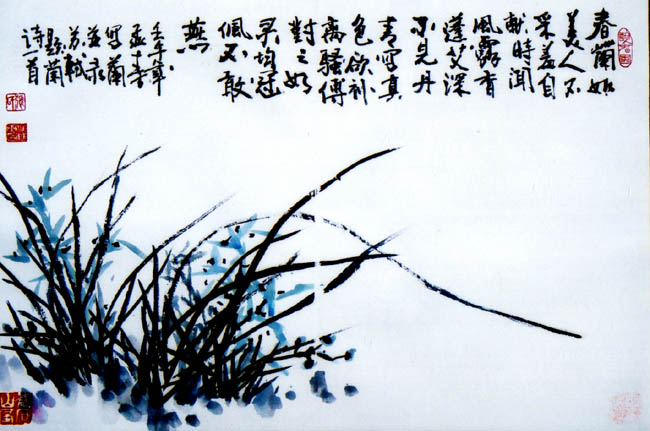 春蘭如
美人不
采羞自
献時聞
風露香
蓬艾深
不見丹
青写真
色欲补
离骚傳
對之如
灵均冠
佩不敢
燕
壬午年
孟
写蘭
並录
苏軾
題蘭
詩一首